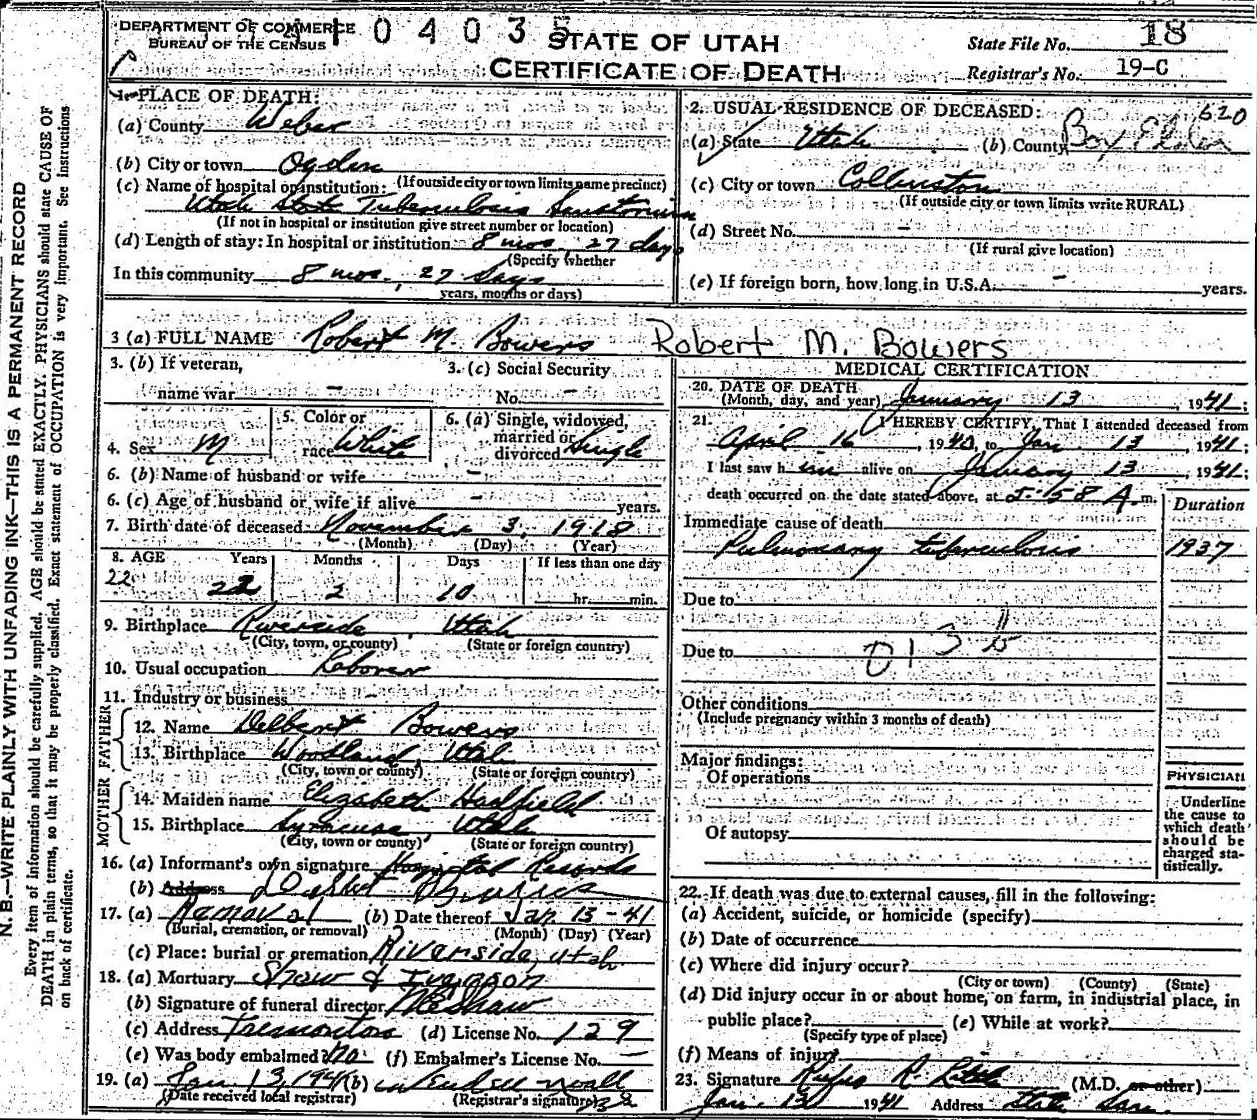 DEPARTMENT OF COMMERCE
BUREAU OF THE CENSUS
04035
STATE OF UTAH
CERTIFICATE OF DEATH
State File No. 18
Registrar's No. 19-C
N. B.—WRITE PLAINLY WITH UNFADING INK—THIS IS A PERMANENT RECORD
Every item of information should be carefully supplied. AGE should be stated EXACTLY. PHYSICIANS should state CAUSE OF
DEATH in plain terms, so that it may be properly classified. Exact statement of OCCUPATION is very important. See instructions
on back of certificate.
1. PLACE OF DEATH:
(a) County Weber
(b) City or town Ogden
(If outside city or town limits name precinct)
(c) Name of hospital or institution:
Utah State Tuberculosis Sanatorium
(If not in hospital or institution give street number or location)
(d) Length of stay: In hospital or institution 8 mos. 27 days
(Specify whether
In this community 8 mos., 27 days
years, months or days)
2. USUAL RESIDENCE OF DECEASED: 620
(a) State Utah (b) County Box Elder
(c) City or town Collinston
(If outside city or town limits write RURAL)
(d) Street No. -
(If rural give location)
(e) If foreign born, how long in U.S.A. - years.
3 (a) FULL NAME Robert M. Bowers Robert M. Bowers
3. (b) If veteran,
name war -
3. (c) Social Security
No. -
4. Sex M
5. Color or
race White
6. (a) Single, widowed,
married or
divorced Single
6. (b) Name of husband or wife -
6. (c) Age of husband or wife if alive - years.
7. Birth date of deceased November 3, 1918
(Month) (Day) (Year)
8. AGE Years Months Days If less than one day
22 22 2 10 hr. min.
9. Birthplace Riverside, Utah
(City, town, or county) (State or foreign country)
10. Usual occupation Laborer
11. Industry or business -
FATHER
12. Name Delbert Bowers
13. Birthplace Woodland, Utah
(City, town or county) (State or foreign country)
MOTHER
14. Maiden name Elizabeth Hadfield
15. Birthplace Syracuse, Utah
(City, town or county) (State or foreign country)
16. (a) Informant's own signature Hospital Records
(b) Address
17. (a) Removal (b) Date thereof Jan. 13-41
(Burial, cremation, or removal) (Month) (Day) (Year)
(c) Place: burial or cremation Riverside, Utah
18. (a) Mortuary Shaw & Iverson
(b) Signature of funeral director
(c) Address Tremonton (d) License No. 129
(e) Was body embalmed No. (f) Embalmer's License No. -
19. (a) Jan. 13, 1941 (b)
(Date received local registrar) (Registrar's signature)
MEDICAL CERTIFICATION
20. DATE OF DEATH
(Month, day, and year) January 13, 1941;
21. I HEREBY CERTIFY, That I attended deceased from
April 16, 1940, to Jan. 13, 1941;
I last saw him alive on January 13, 1941;
death occurred on the date stated above, at 5:58 A. m.
Duration
Immediate cause of death
Pulmonary tuberculosis 1937
Due to
Due to
013
Other conditions
(Include pregnancy within 3 months of death)
Major findings:
Of operations
Of autopsy
PHYSICIAN
Underline
the cause to
which death
should be
charged sta-
tistically.
22. If death was due to external causes, fill in the following:
(a) Accident, suicide, or homicide (specify)
(b) Date of occurrence
(c) Where did injury occur?
(City or town) (County) (State)
(d) Did injury occur in or about home, on farm, in industrial place, in
public place? (e) While at work?
(Specify type of place)
(f) Means of injury
23. Signature Rufus R. (M.D. or other)
Jan. 13 1941 Address State San